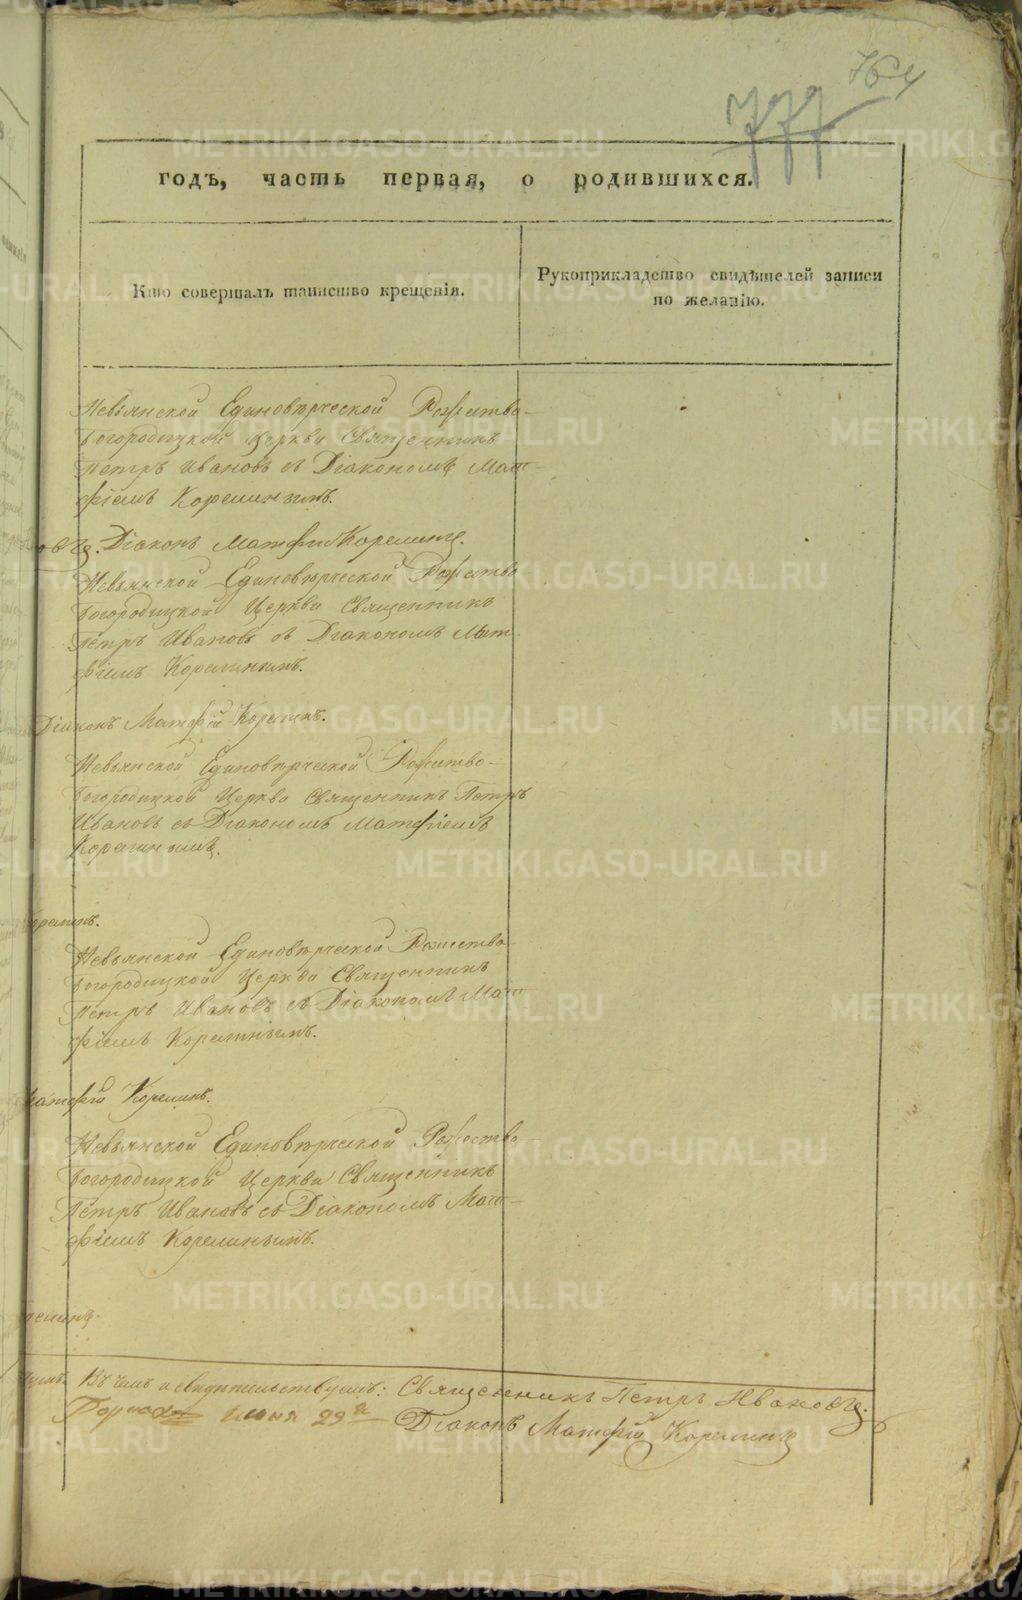 764
777
годъ, часть первая, о родившихся.
Кто совершалъ таинство крещенія.
Рукоприкладство свидѣтелей записи
по желанію.
Невьянской Единовѣрческой Рожество-
Богородицкой Церкви Священникъ
Петръ Ивановъ съ Діакономъ Мат-
фіемъ Корелинымъ.
овъ. Діаконъ Матфій Корелинъ.
Невьянской Единовѣрческой Рожество
Богородицкой Церкви Священникъ
Петръ Ивановъ съ Діакономъ Мат-
фіемъ Корелинымъ.
Діаконъ Матфій Корелинъ.
Невьянской Единовѣрческой Рожество-
Богородицкой Церкви Священникъ Петръ
Ивановъ съ Діакономъ Матфіемъ
Корелинымъ.
орелинъ.
Невьянской Единовѣрческой Рожество-
Богородицкой Церкви Священникъ
Петръ Ивановъ съ Діакономъ Мат-
фіемъ Корелинымъ.
Матфій Корелинъ.
Невьянской Единовѣрческой Рожество-
Богородицкой Церкви Священникъ
Петръ Ивановъ съ Діакономъ Мат-
фіемъ Корелинымъ.
релинъ.
Въ чемъ и свидѣтельствуемъ: Священникъ Петръ Ивановъ.
Іюня 29
Діаконъ Матфій Корелинъ
METRIKI.GASO-URAL.RU